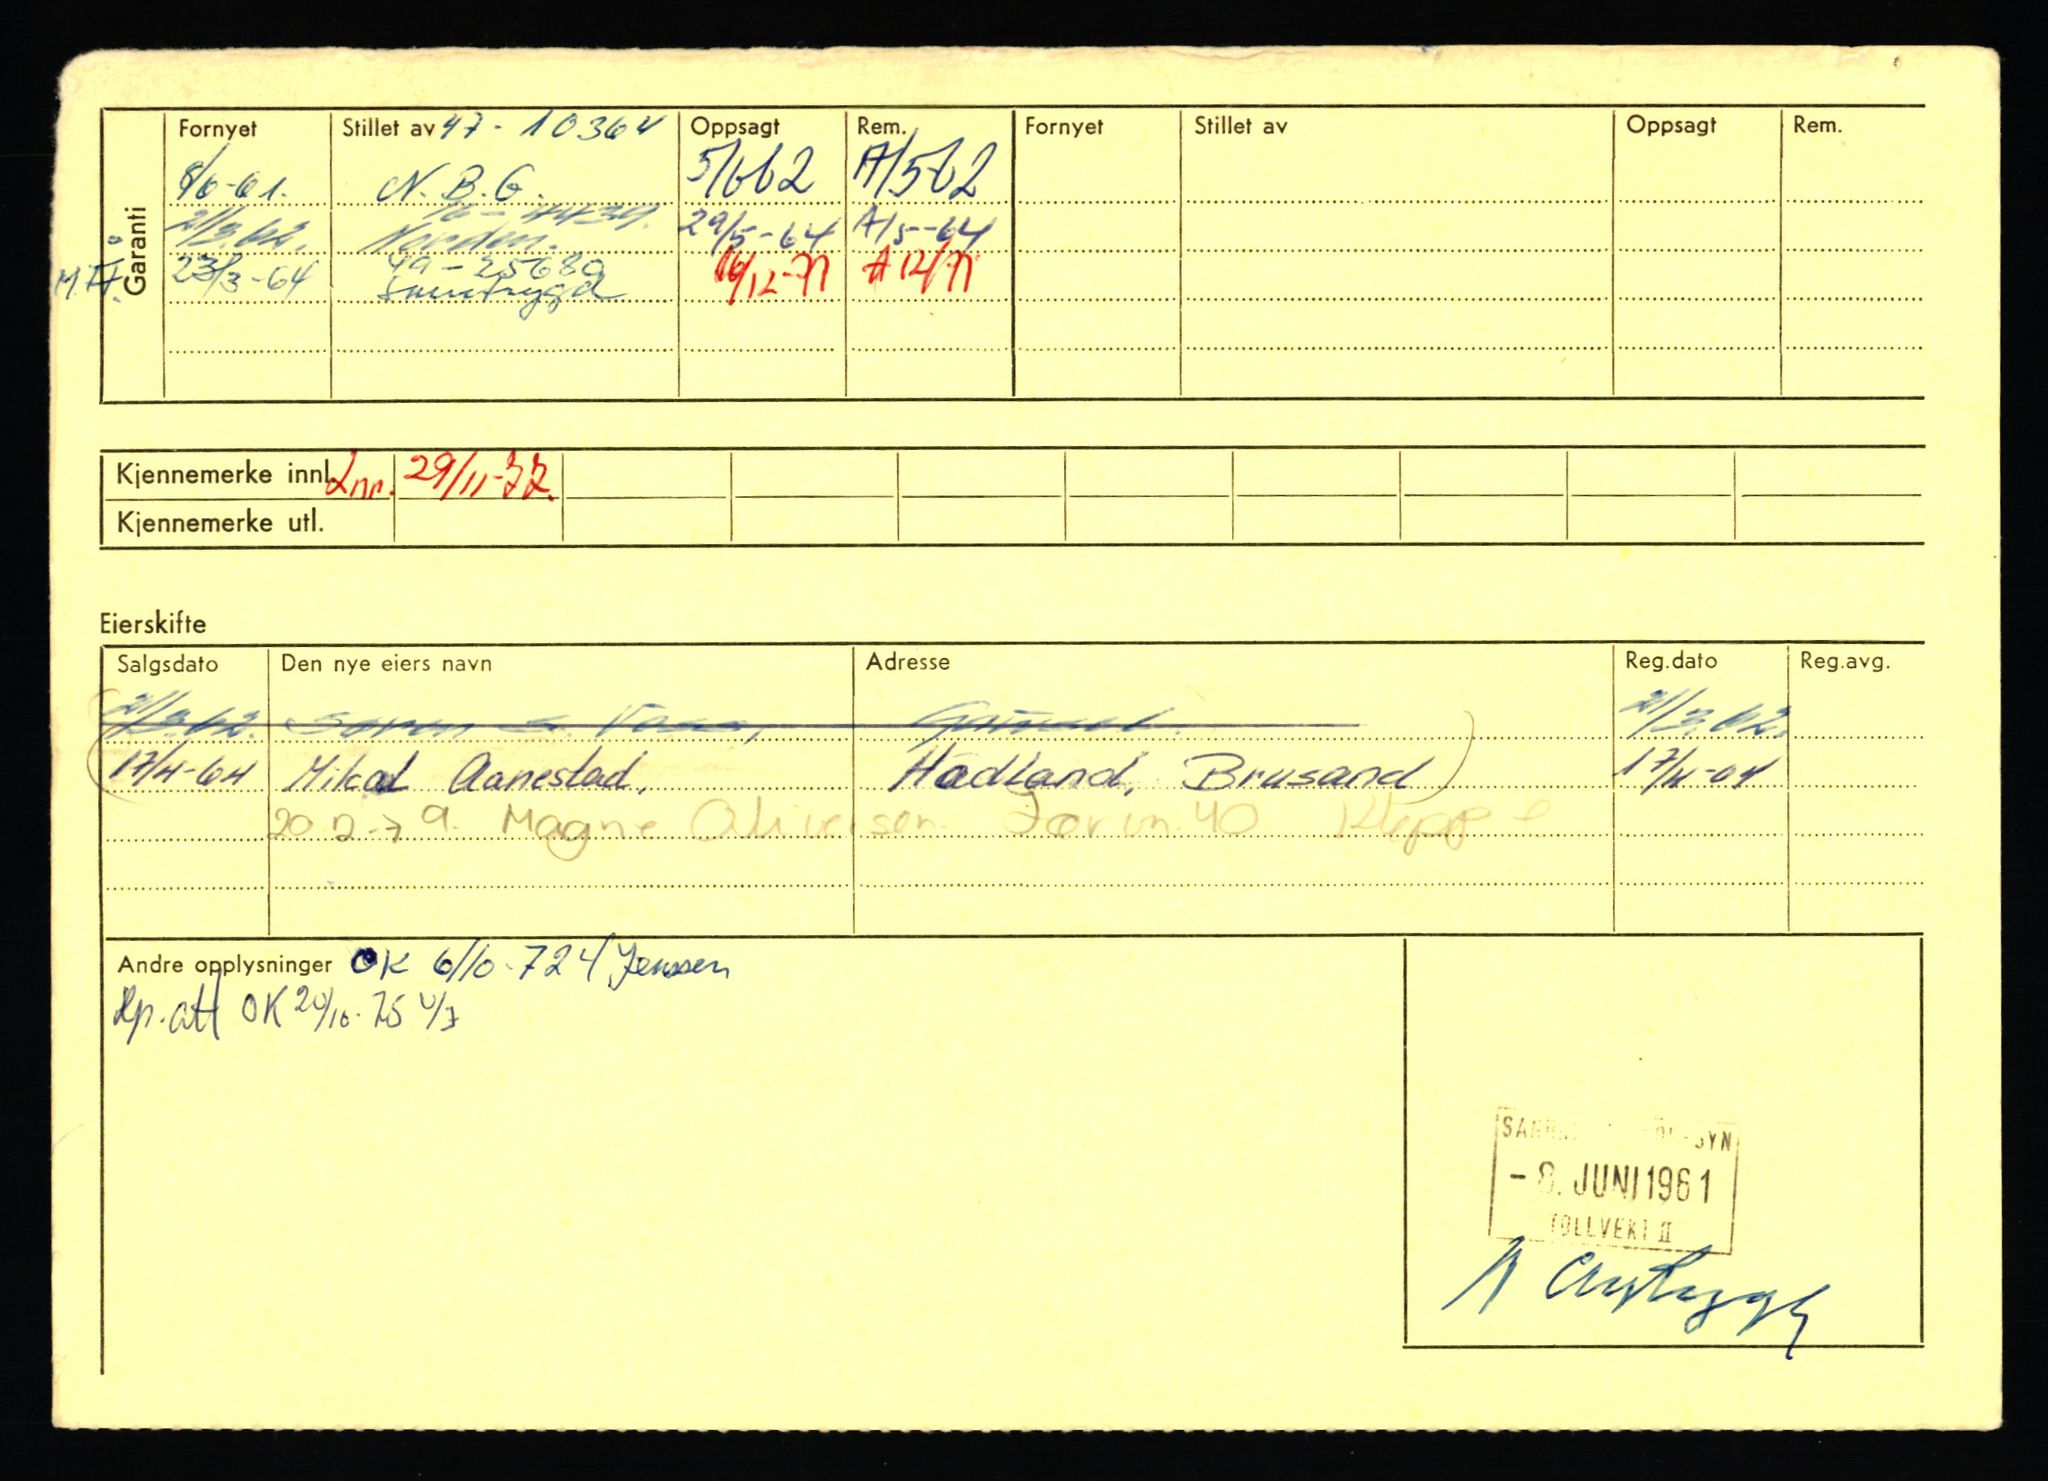 Garanti
Fornyet Stillet av 47-10364 Oppsagt Rem. Fornyet Stillet av Oppsagt Rem.
8/6-61. N.B.G. 5/662 A/562
21/3.62. Norden. 29/5-64 A/5-64
23/3-64 49-25680 16/12-71 A 12/71
Samtrygd
Kjennemerke innl. 29/11-77.
Kjennemerke utl.
Eierskifte
Salgsdato Den nye eiers navn Adresse Reg.dato Reg.avg.
21/3.62. 21/3.62.
17/4-64 Mikal Aanestad, Hadland, Brusand 17/4-64
Magne Oliversen 40 Kleppe
Andre opplysninger OK 6/10-72 Jenssen
OK 20/10-75
-8. JUNI 1961
TOLLVEKT II